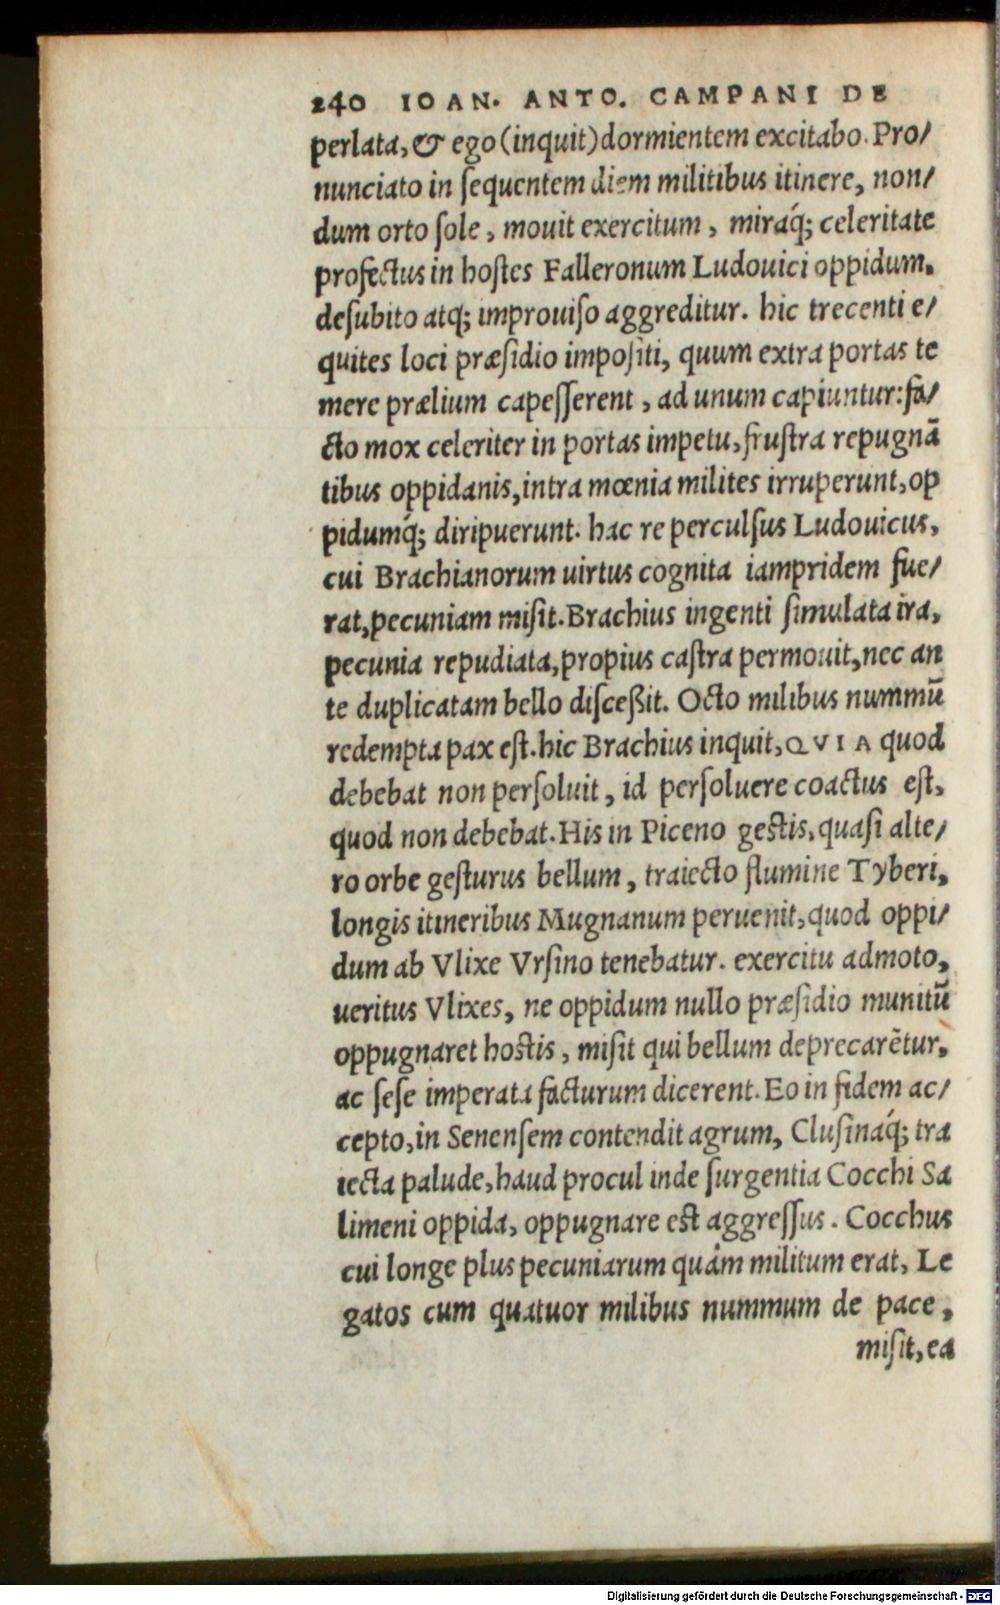 240 IOAN. ANTO. CAMPANI DE
perlata, & ego (inquit) dormientem excitabo. Pro/
nunciato in ſequentem diem militibus itinere, non/
dum orto ſole, mouit exercitum, miráq́; celeritate
profectus in hoſtes Falleronum Ludouici oppidum.
deſubito atq; improuiſo aggreditur. hic trecenti e/
quites loci præſidio impoſiti, quum extra portas te
mere prælium capeſſerent, ad unum capiuntur: fa/
cto mox celeriter in portas impetu, fruſtra repugnā
tibus oppidanis, intra mœnia milites irruperunt, op
pidumq́; diripuerunt. hac re perculſus Ludouicus,
cui Brachianorum uirtus cognita iampridem fue/
rat, pecuniam miſit. Brachius ingenti ſimulata ira,
pecunia repudiata, propius caſtra permouit, nec an
te duplicatam bello diſceßit. Octo milibus nummū
redempta pax eſt. hic Brachius inquit, QVIA quod
debebat non perſoluit, id perſoluere coactus eſt,
quod non debebat. His in Piceno geſtis, quaſi alte/
ro orbe geſturus bellum, traiecto flumine Tyberi,
longis itineribus Mugnanum peruenit, quod oppi/
dum ab Vlixe Vrſino tenebatur. exercitu admoto,
ueritus Vlixes, ne oppidum nullo præſidio munitū
oppugnaret hoſtis, miſit qui bellum deprecarētur,
ac ſeſe imperata facturum dicerent. Eo in fidem ac/
cepto, in Senenſem contendit agrum, Cluſináq́; tra
iecta palude, haud procul inde ſurgentia Cocchi Sa
limeni oppida, oppugnare eſt aggreſſus. Cocchus
cui longe plus pecuniarum quàm militum erat, Le
gatos cum quatuor milibus nummum de pace,
miſit, ea
Digitalisierung gefördert durch die Deutsche Forschungsgemeinschaft - DFG